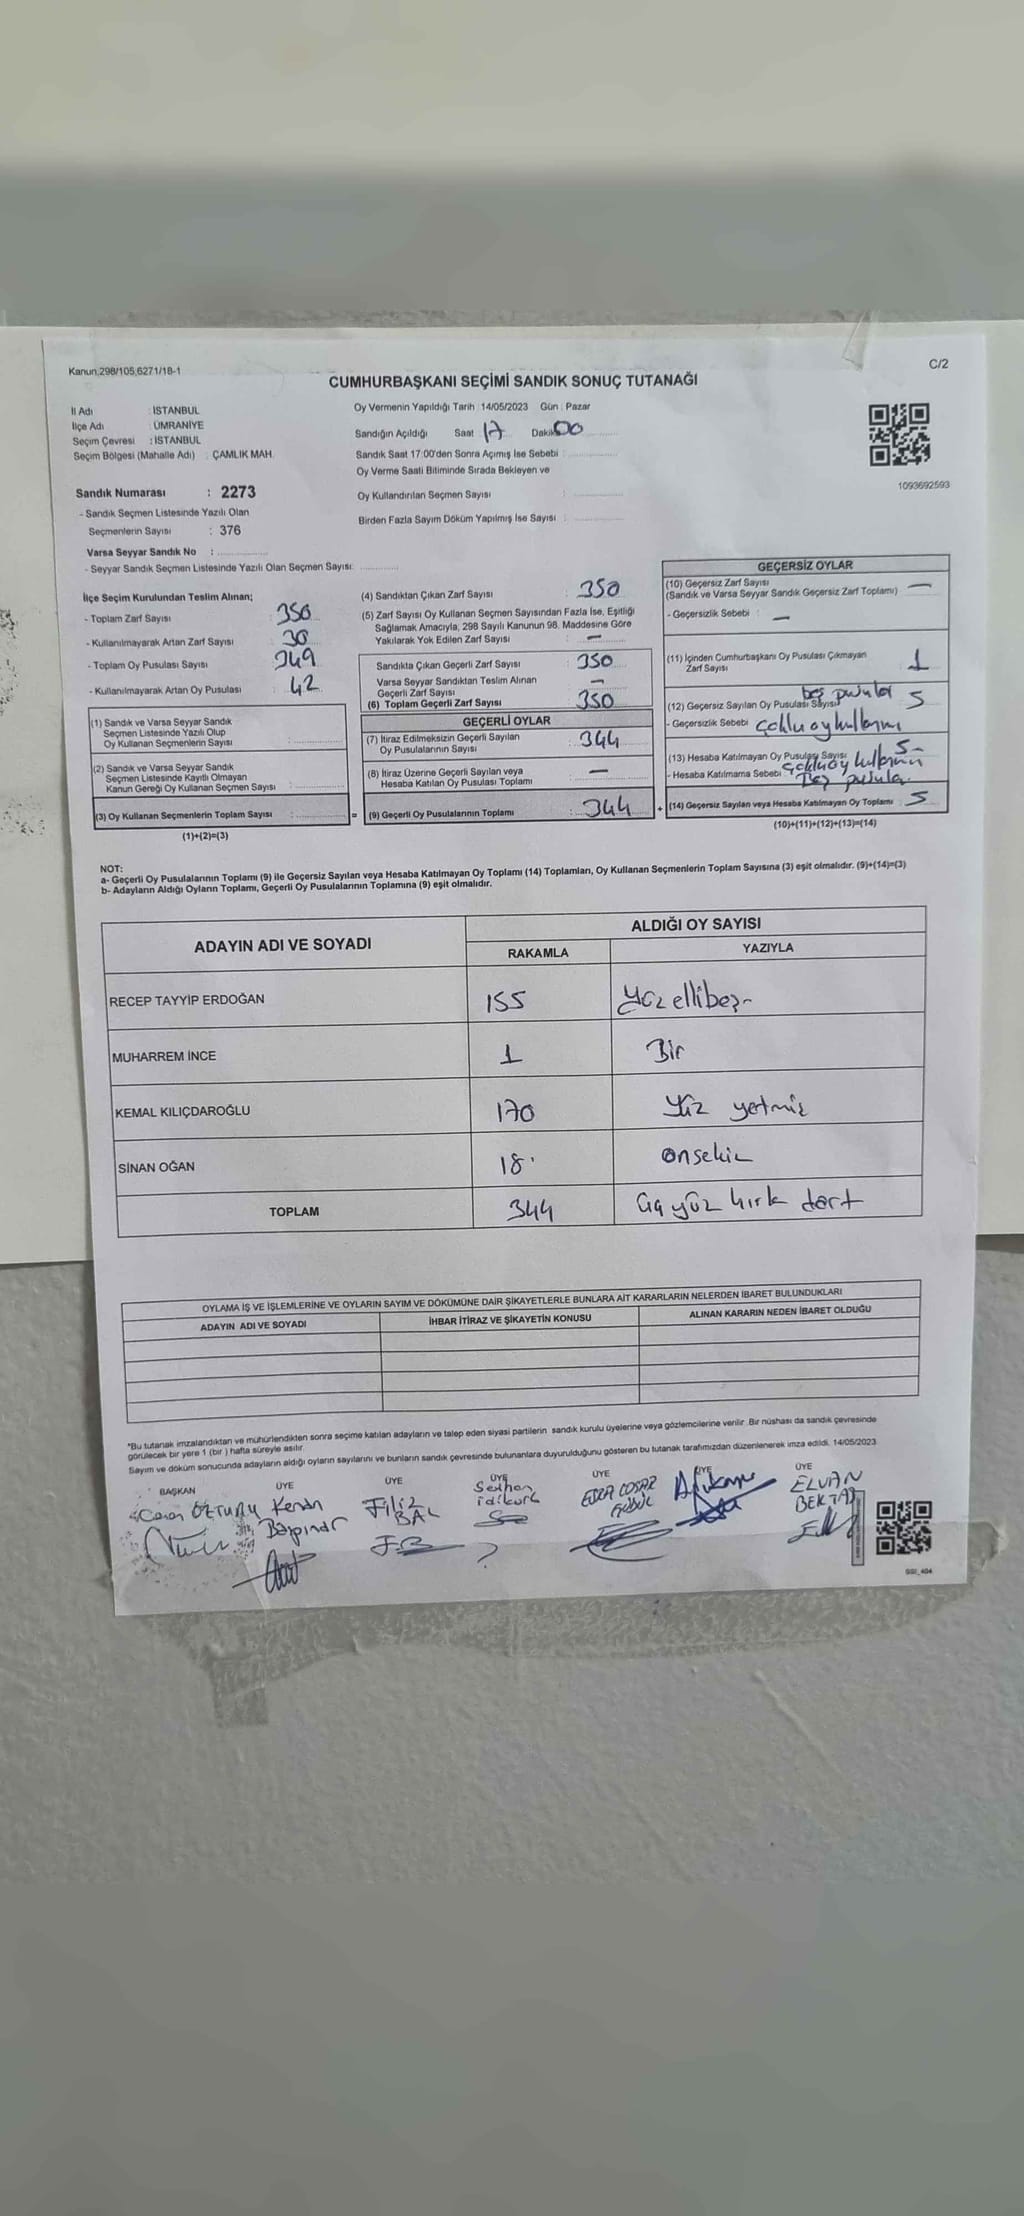 Kanun,298/105,6271/18-1
C/2
CUMHURBAŞKANI SEÇİMİ SANDIK SONUÇ TUTANAĞI
İl Adı : İSTANBUL
İlçe Adı : ÜMRANİYE
Seçim Çevresi : İSTANBUL
Seçim Bölgesi (Mahalle Adı) : ÇAMLIK MAH.
Sandık Numarası : 2273
- Sandık Seçmen Listesinde Yazılı Olan
Seçmenlerin Sayısı : 376
Varsa Seyyar Sandık No :
- Seyyar Sandık Seçmen Listesinde Yazılı Olan Seçmen Sayısı:
Oy Vermenin Yapıldığı Tarih : 14/05/2023 Gün : Pazar
Sandığın Açıldığı Saat 17 Dakika 00
Sandık Saat 17:00'den Sonra Açımış İse Sebebi :
Oy Verme Saati Bitiminde Sırada Bekleyen ve
Oy Kullandırılan Seçmen Sayısı :
Birden Fazla Sayım Döküm Yapılmış İse Sayısı :
1093692593
İlçe Seçim Kurulundan Teslim Alınan;
- Toplam Zarf Sayısı : 350
- Kullanılmayarak Artan Zarf Sayısı : 30
- Toplam Oy Pusulası Sayısı : 349
- Kullanılmayarak Artan Oy Pusulası : 42
(1) Sandık ve Varsa Seyyar Sandık
Seçmen Listesinde Yazılı Olup
Oy Kullanan Seçmenlerin Sayısı :
(2) Sandık ve Varsa Seyyar Sandık
Seçmen Listesinde Kayıtlı Olmayan
Kanun Gereği Oy Kullanan Seçmen Sayısı :
(3) Oy Kullanan Seçmenlerin Toplam Sayısı :
(1)+(2)=(3)
(4) Sandıktan Çıkan Zarf Sayısı : 350
(5) Zarf Sayısı Oy Kullanan Seçmen Sayısından Fazla İse, Eşitliği
Sağlamak Amacıyla, 298 Sayılı Kanunun 98. Maddesine Göre
Yakılarak Yok Edilen Zarf Sayısı : —
Sandıkta Çıkan Geçerli Zarf Sayısı : 350
Varsa Seyyar Sandıktan Teslim Alınan
Geçerli Zarf Sayısı : —
(6) Toplam Geçerli Zarf Sayısı 350
GEÇERLİ OYLAR
(7) İtiraz Edilmeksizin Geçerli Sayılan
Oy Pusulalarının Sayısı : 344
(8) İtiraz Üzerine Geçerli Sayılan veya
Hesaba Katılan Oy Pusulası Toplamı : —
= (9) Geçerli Oy Pusulalarının Toplamı : 344 +
GEÇERSİZ OYLAR
(10) Geçersiz Zarf Sayısı
(Sandık ve Varsa Seyyar Sandık Geçersiz Zarf Toplamı) —
- Geçersizlik Sebebi : —
(11) İçinden Cumhurbaşkanı Oy Pusulası Çıkmayan
Zarf Sayısı 1
boş pusula
(12) Geçersiz Sayılan Oy Pusulası Sayısı 5
- Geçersizlik Sebebi çoklu oy kullanımı
(13) Hesaba Katılmayan Oy Pusulası Sayısı 5-
çoklu oy kullanımı
- Hesaba Katılmama Sebebi Boş pusula
(14) Geçersiz Sayılan veya Hesaba Katılmayan Oy Toplamı : 5
(10)+(11)+(12)+(13)=(14)
NOT:
a- Geçerli Oy Pusulalarının Toplamı (9) ile Geçersiz Sayılan veya Hesaba Katılmayan Oy Toplamı (14) Toplamları, Oy Kullanan Seçmenlerin Toplam Sayısına (3) eşit olmalıdır. (9)+(14)=(3)
b- Adayların Aldığı Oyların Toplamı, Geçerli Oy Pusulalarının Toplamına (9) eşit olmalıdır.
ADAYIN ADI VE SOYADI
ALDIĞI OY SAYISI
RAKAMLA YAZIYLA
RECEP TAYYİP ERDOĞAN 155 Yüz ellibeş-
MUHARREM İNCE 1 Bir
KEMAL KILIÇDAROĞLU 170 Yüz yetmiş
SİNAN OĞAN 18 onsekiz
TOPLAM 344 Üç yüz kırk dört
OYLAMA İŞ VE İŞLEMLERİNE VE OYLARIN SAYIM VE DÖKÜMÜNE DAİR ŞİKAYETLERLE BUNLARA AİT KARARLARIN NELERDEN İBARET BULUNDUKLARI
ADAYIN ADI VE SOYADI İHBAR İTİRAZ VE ŞİKAYETİN KONUSU ALINAN KARARIN NEDEN İBARET OLDUĞU
*Bu tutanak imzalandıktan ve mühürlendikten sonra seçime katılan adayların ve talep eden siyasi partilerin sandık kurulu üyelerine veya gözlemcilerine verilir .Bir nüshası da sandık çevresinde
görülecek bir yere 1 (bir ) hafta süreyle asılır.
Sayım ve döküm sonucunda adayların aldığı oyların sayılarını ve bunların sandık çevresinde bulunanlara duyurulduğunu gösteren bu tutanak tarafımızdan düzenlenerek imza edildi. 14/05/2023
BAŞKAN ÜYE ÜYE ÜYE ÜYE ÜYE ÜYE
Kenan
Başpınar
Filiz
BAL
ELVAN
BEKTAŞ